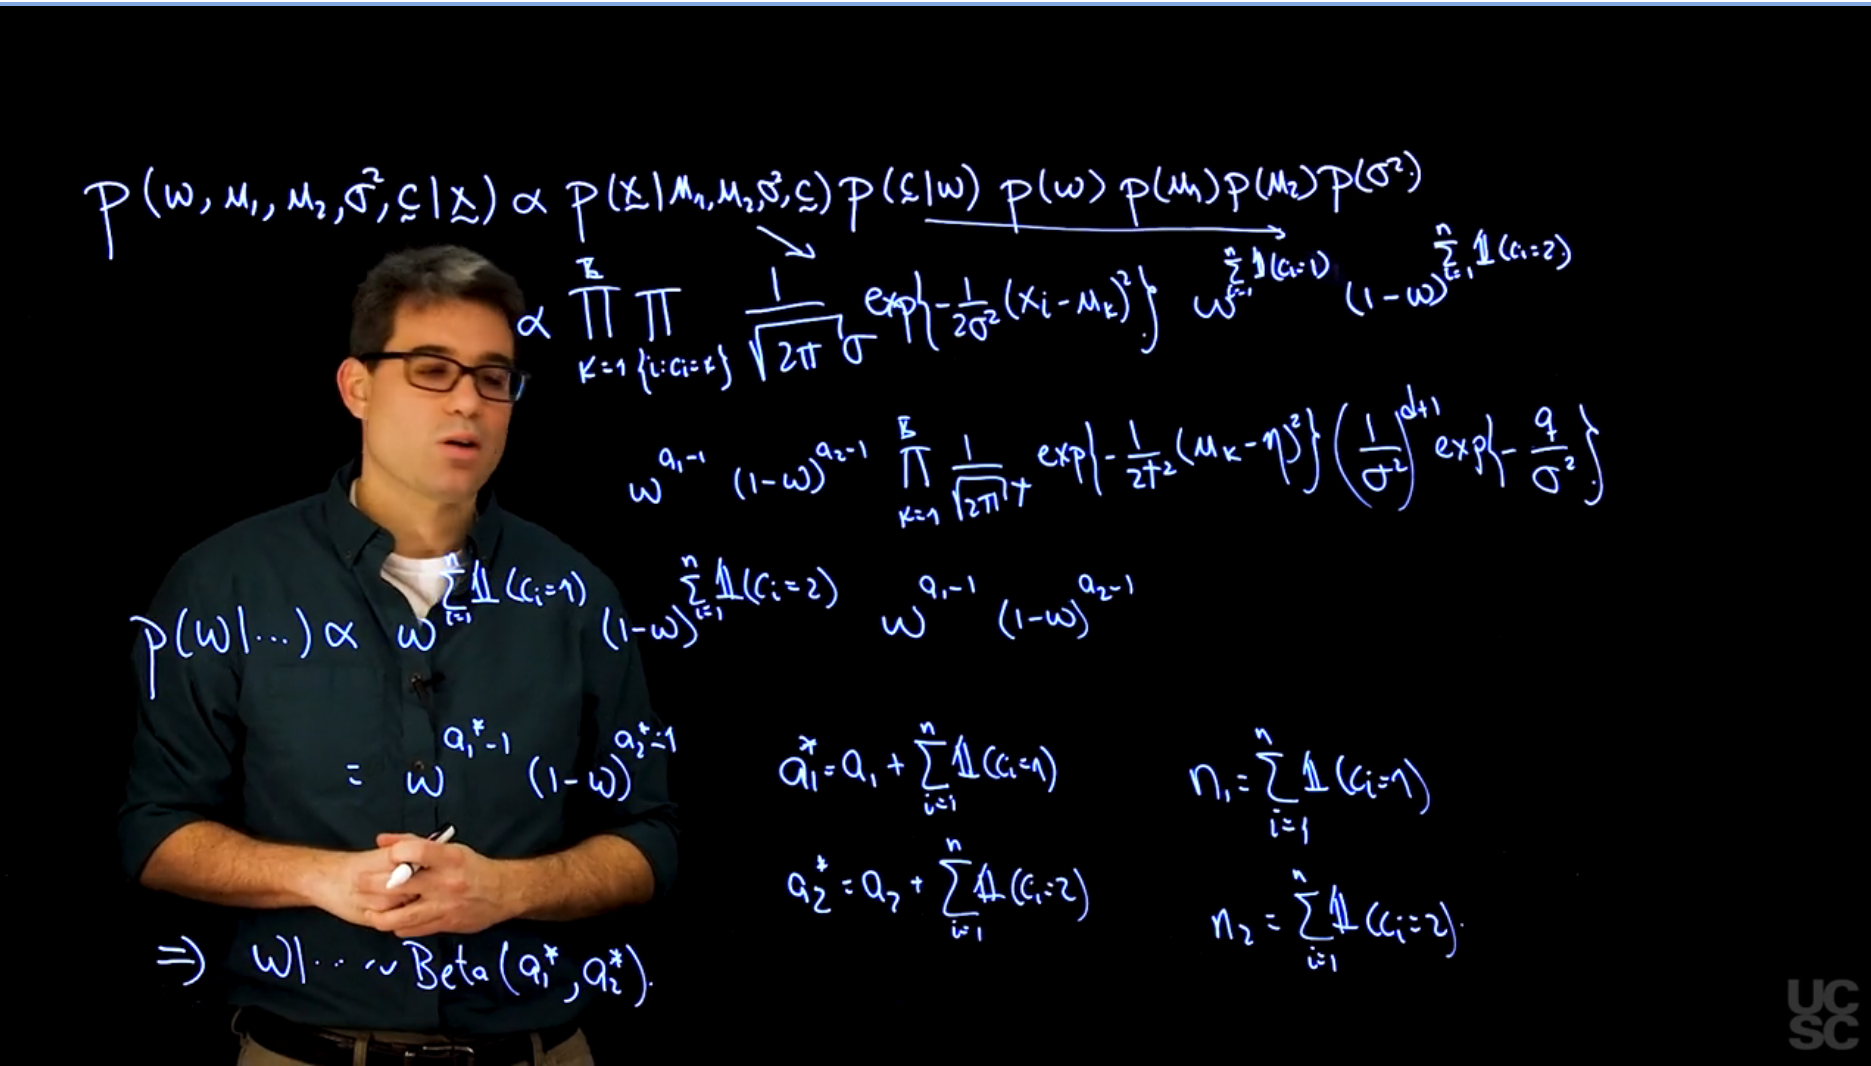 p(ω, μ₁, μ₂, σ², c̰ | x̰) ∝ p(x̰ | μ₁, μ₂, σ², c̰) p(c̰ | ω) p(ω) p(μ₁) p(μ₂) p(σ²)
∝ ∏_{k=1} ∏_{{i:cᵢ=k}} 1/(√(2π) σ) exp{-1/(2σ²) (xᵢ - μₖ)²} ω^{∑_{i=1}^{n} 𝟙(cᵢ=1)} (1-ω)^{∑_{i=1}^{n} 𝟙(cᵢ=2)}
ω^{a₁-1} (1-ω)^{a₂-1} ∏_{k=1} 1/(√(2π) τ) exp{-1/(2τ²) (μₖ - η)²} (1/σ²)^{d+1} exp{-q/σ²}
p(ω|...) ∝ ω^{∑_{i=1}^{n} 𝟙(cᵢ=1)} (1-ω)^{∑_{i=1}^{n} 𝟙(cᵢ=2)} ω^{a₁-1} (1-ω)^{a₂-1}
= ω^{a₁*-1} (1-ω)^{a₂*-1}
a₁* = a₁ + ∑_{i=1}^{n} 𝟙(cᵢ=1)
n₁ = ∑_{i=1}^{n} 𝟙(cᵢ=1)
a₂* = a₂ + ∑_{i=1}^{n} 𝟙(cᵢ=2)
n₂ = ∑_{i=1}^{n} 𝟙(cᵢ=2).
⇒ ω|... ~ Beta(a₁*, a₂*).
UC
SC